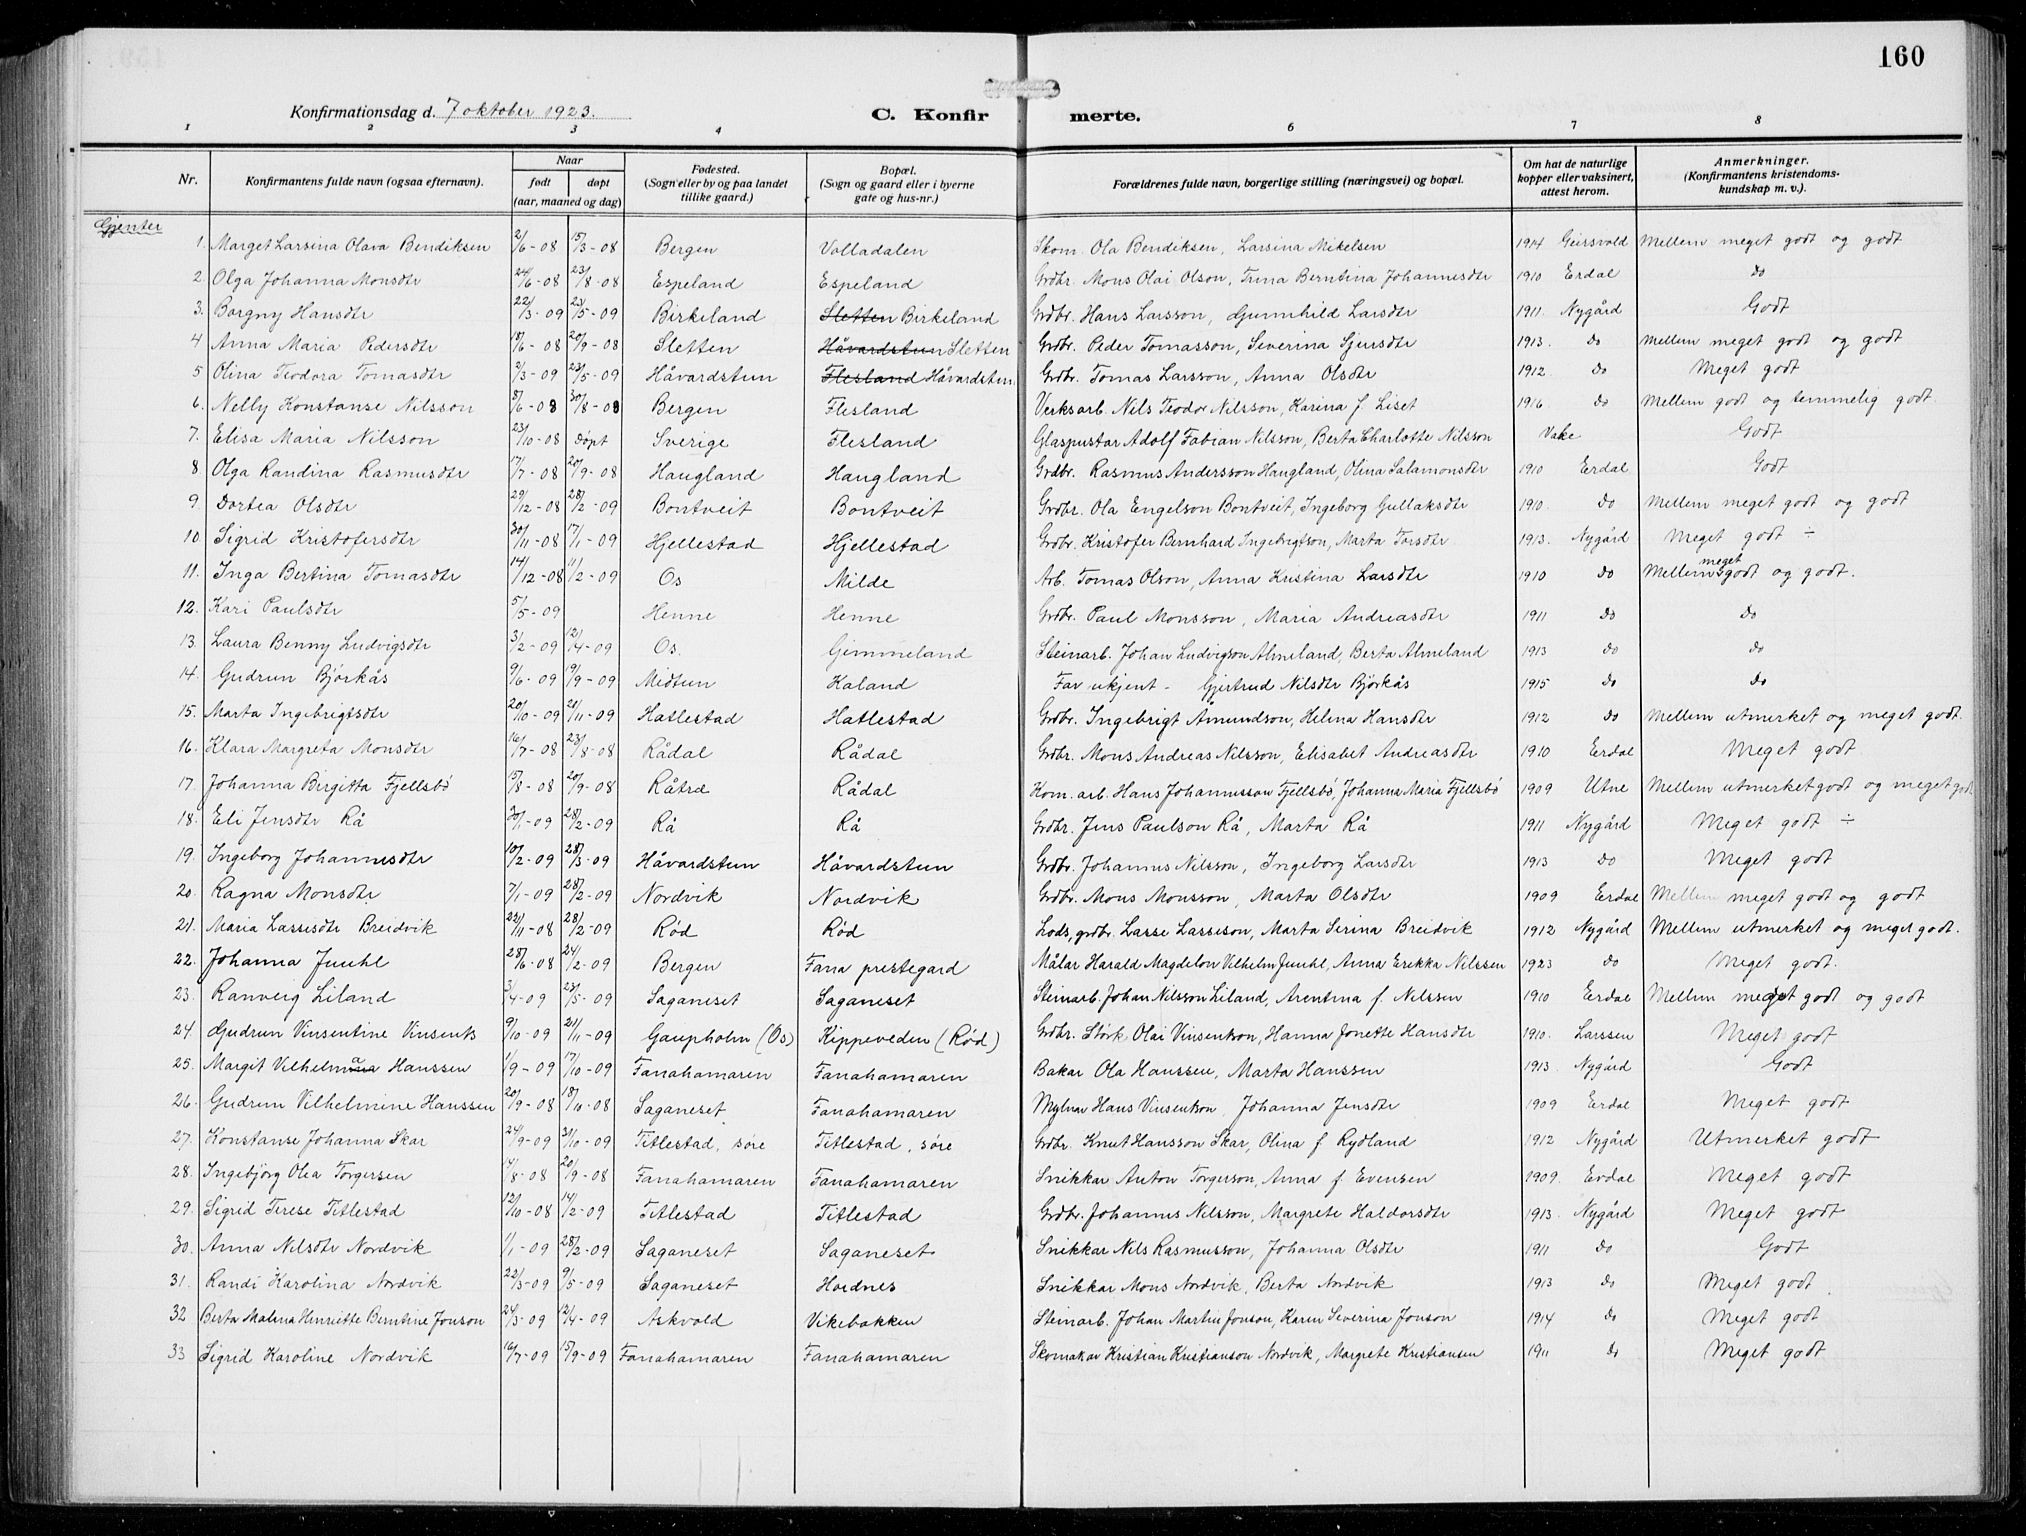 160
Konfirmationsdag d. 7 oktober 1923.
C. Konfirmerte.
1 2 3 4 6 7 8
Nr. | Konfirmantens fulde navn (ogsaa efternavn). | Naar født | døpt (aar, maaned og dag) | Fødested. (Sogn eller by og paa landet tillike gaard.) | Bopæl. (Sogn og gaard eller i byerne gate og hus-nr.) | Forældrenes fulde navn, borgerlige stilling (næringsvei) og bopæl. | Om hat de naturlige kopper eller vaksinert, attest herom. | Anmerkninger. (Konfirmantens kristendomskundskap m. v.).
Gjenter
1. Marget Larsina Olava Bendiksen 2/6-08 15/3-08 Bergen Volladalen Skom. Ola Bendiksen, Larsina Mikelsen 1914 Geirsvold Mellem meget godt og godt
2. Olga Johanna Monsdtr 24/6-08 23/8-08 Espeland Espeland Grdbr. Mons Olai Olson, Trina Berntina Johannesdtr 1910 Erdal do
3. Borgny Hansdtr 22/3-09 23/5-09 Birkeland Sletten Birkeland Grdbr. Hans Larsson, Gunnhild Larsdtr 1911 Nygård Godt
4 Anna Maria Pedersdtr 18/6-08 20/9-08 Sletten Håvardstun Sletten Grdbr. Peder Tomasson, Severina Sjursdtr 1913. do Mellem meget godt og godt
5 Olina Teodora Tomasdtr 2/3-09 23/5-09 Håvardstun Flesland Håvardstun Grdbr. Tomas Larsson, Anna Olsdtr 1912. do Meget godt
6. Nelly Konstanse Nilsson 8/6-08 30/8-08 Bergen Flesland Verksarb. Nils Teodor Nilsson, Karina f. Liset 1916 do Mellem godt og temmelig godt.
7. Elisa Maria Nilsson 23/10-08 Døpt Sverige Flesland Glaspustar Adolf Fabian Nilsson, Berta Charlotte Nilsson Vake Godt
8 Olga Randina Rasmusdtr 17/7-08 20/9-08 Haugland Haugland Grdbr. Rasmus Andersson Haugland, Olina Salamonsdtr 1910 Erdal Godt
9 Dortea Olsdtr 29/12-08 28/2-09 Bontveit Bontveit Grdbr. Ola Engelson Bontveit, Ingeborg Gullaksdtr 1910. do Mellem meget godt og godt
10. Sigrid Kristofersdtr 30/11-08 17/1-09 Hjellestad Hjellestad Grdbr. Kristofer Bernhard Ingebrigtson, Marta Torsdtr 1913. Nygård Meget godt ÷
11. Inga Bertina Tomasdtr 14/12-08 11/2-09 Os Milde Arb. Tomas Olson, Anna Kristina Larsdtr 1910 do Mellem meget godt og godt.
12. Kari Paulsdtr 5/5-09 Henne Henne Grdbr. Paul Monsson, Maria Andreasdtr 1911 do do
13. Laura Benny Ludvigsdtr 3/2-09 12/4-09 Os. Gimmeland Steinarb. Johan Ludvigson Almeland, Berta Almeland 1913 do do
14. Gudrun Bjørkås 9/6-09 19/9-09 Midtun Kaland Far ukjent - Gjertrud Nilsdtr Bjørkås 1915 do do
15. Marta Ingebrigtsdtr 20/10-09 21/11-09 Hatlestad Hatlestad Grdbr. Ingebrigt Åmundson, Helena Hansdtr 1912 do Mellem utmerket og meget godt.
16. Klara Margreta Monsdtr 16/7-08 23/8-08 Rådal Rådal Grdbr. Mons Andreas Nilsson, Elisabet Andreasdtr 1910 Erdal Meget godt
17. Johanna Birgitta Fjellsbø 15/8-08 20/9-08 Råtræ Rådal Kom. arb. Hans Johannesson Fjellsbø, Johanna Maria Fjellsbø 1909 Utne Mellem utmerket godt og meget godt
18. Eli Jensdtr Rå 30/1-09 28/2-09 Rå Rå Grdbr. Jens Paulson Rå, Marta Rå 1911 Nygård Meget godt ÷
19. Ingeborg Johannesdtr 10/2-09 28/3-09 Håvardstun Håvardstun Grdbr. Johannes Nilsson, Ingeborg Larsdtr 1913 do Meget godt
20. Ragna Monsdtr 7/1-09 28/2-09 Nordvik Nordvik Grdbr. Mons Monsson, Marta Olsdtr 1909 Erdal Mellem meget godt og godt
21. Maria Lassesdtr Breidvik 22/11-08 28/2-09 Rød Rød Lods, grdbr. Lasse Lasseson, Marta Serina Breidvik 1912 Nygård Mellem utmerket og meget godt.
22. Johanna Juuhl 28/6-08 24/2-09 Bergen Fana prestegard Målar Harald Magdelon Vilhelm Juuhl, Anna Erekka Nilssen 1923 do Meget godt.
23. Ranveig Liland 3/4-09 23/5-09 Saganeset Saganeset Steinarb. Johan Nilsson Liland, Arentina f. Nilssen 1910 Erdal Mellem meget godt og godt
24. Gudrun Vinsentine Vinsents 9/10-09 21/11-09 Gaupholm (Os) Kippeveden (Rød) Grdbr. Størk Olai Vinsentson, Hanna Jonette Hansdtr 1910. Larssen Meget godt
25. Margit Vilhelmina Hanssen 1/9-09 17/10-09 Fanahamaren Fanahamaren Bakar Ola Hanssen, Marta Hanssen 1913. Nygård Godt
26. Gudrun Vilhelmine Hanssen 20/9-08 18/10-08 Saganeset Fanahamaren Mylnar Hans Vinsentson, Johanna Jensdtr 1909 Erdal Meget godt
27. Konstanse Johanna Skar 24/9-09 31/10-09 Titlestad, søre Titlestad, søre Grdbr. Knut Hansson Skar, Olina f Rydland 1912 Nygård Utmerket godt
28. Ingebjørg Olea Torgersen 14/8-08 20/9-08 Fanahamaren Fanahamaren Snikkar Anton Torgerson, Anna f Evensen 1909. Erdal Meget godt
29. Sigrid Terese Titlestad 12/10-08 14/2-09 Titlestad Titlestad Grdbr. Johannes Nilsson, Margrete Haldorsdtr 1913. Nygård Meget godt
30. Anna Nilsdtr Nordvik 1/1-09 28/2-09 Saganeset Saganeset Snikkar Nils Rasmusson, Johanna Olsdtr 1911 do Godt
31. Randi Karolina Nordvik 22/3-09 9/5-09 Saganeset Hordnes Snikkar Mons Nordvik, Berta Nordvik 1913 do Meget godt
32 Berta Malena Henriette Berntine Jonson 24/3-09 12/4-09 Askvold Vikebakken Steinarb. Johan Martin Jonson, Karen Severina Jonson 1914 do Meget godt
33 Sigrid Karoline Nordvik 16/7-09 15/9-09 Fanahamaren Fanahamaren Skomakar Kristian Kristianson Nordvik, Margrete Kristiansen 1911 do Meget godt